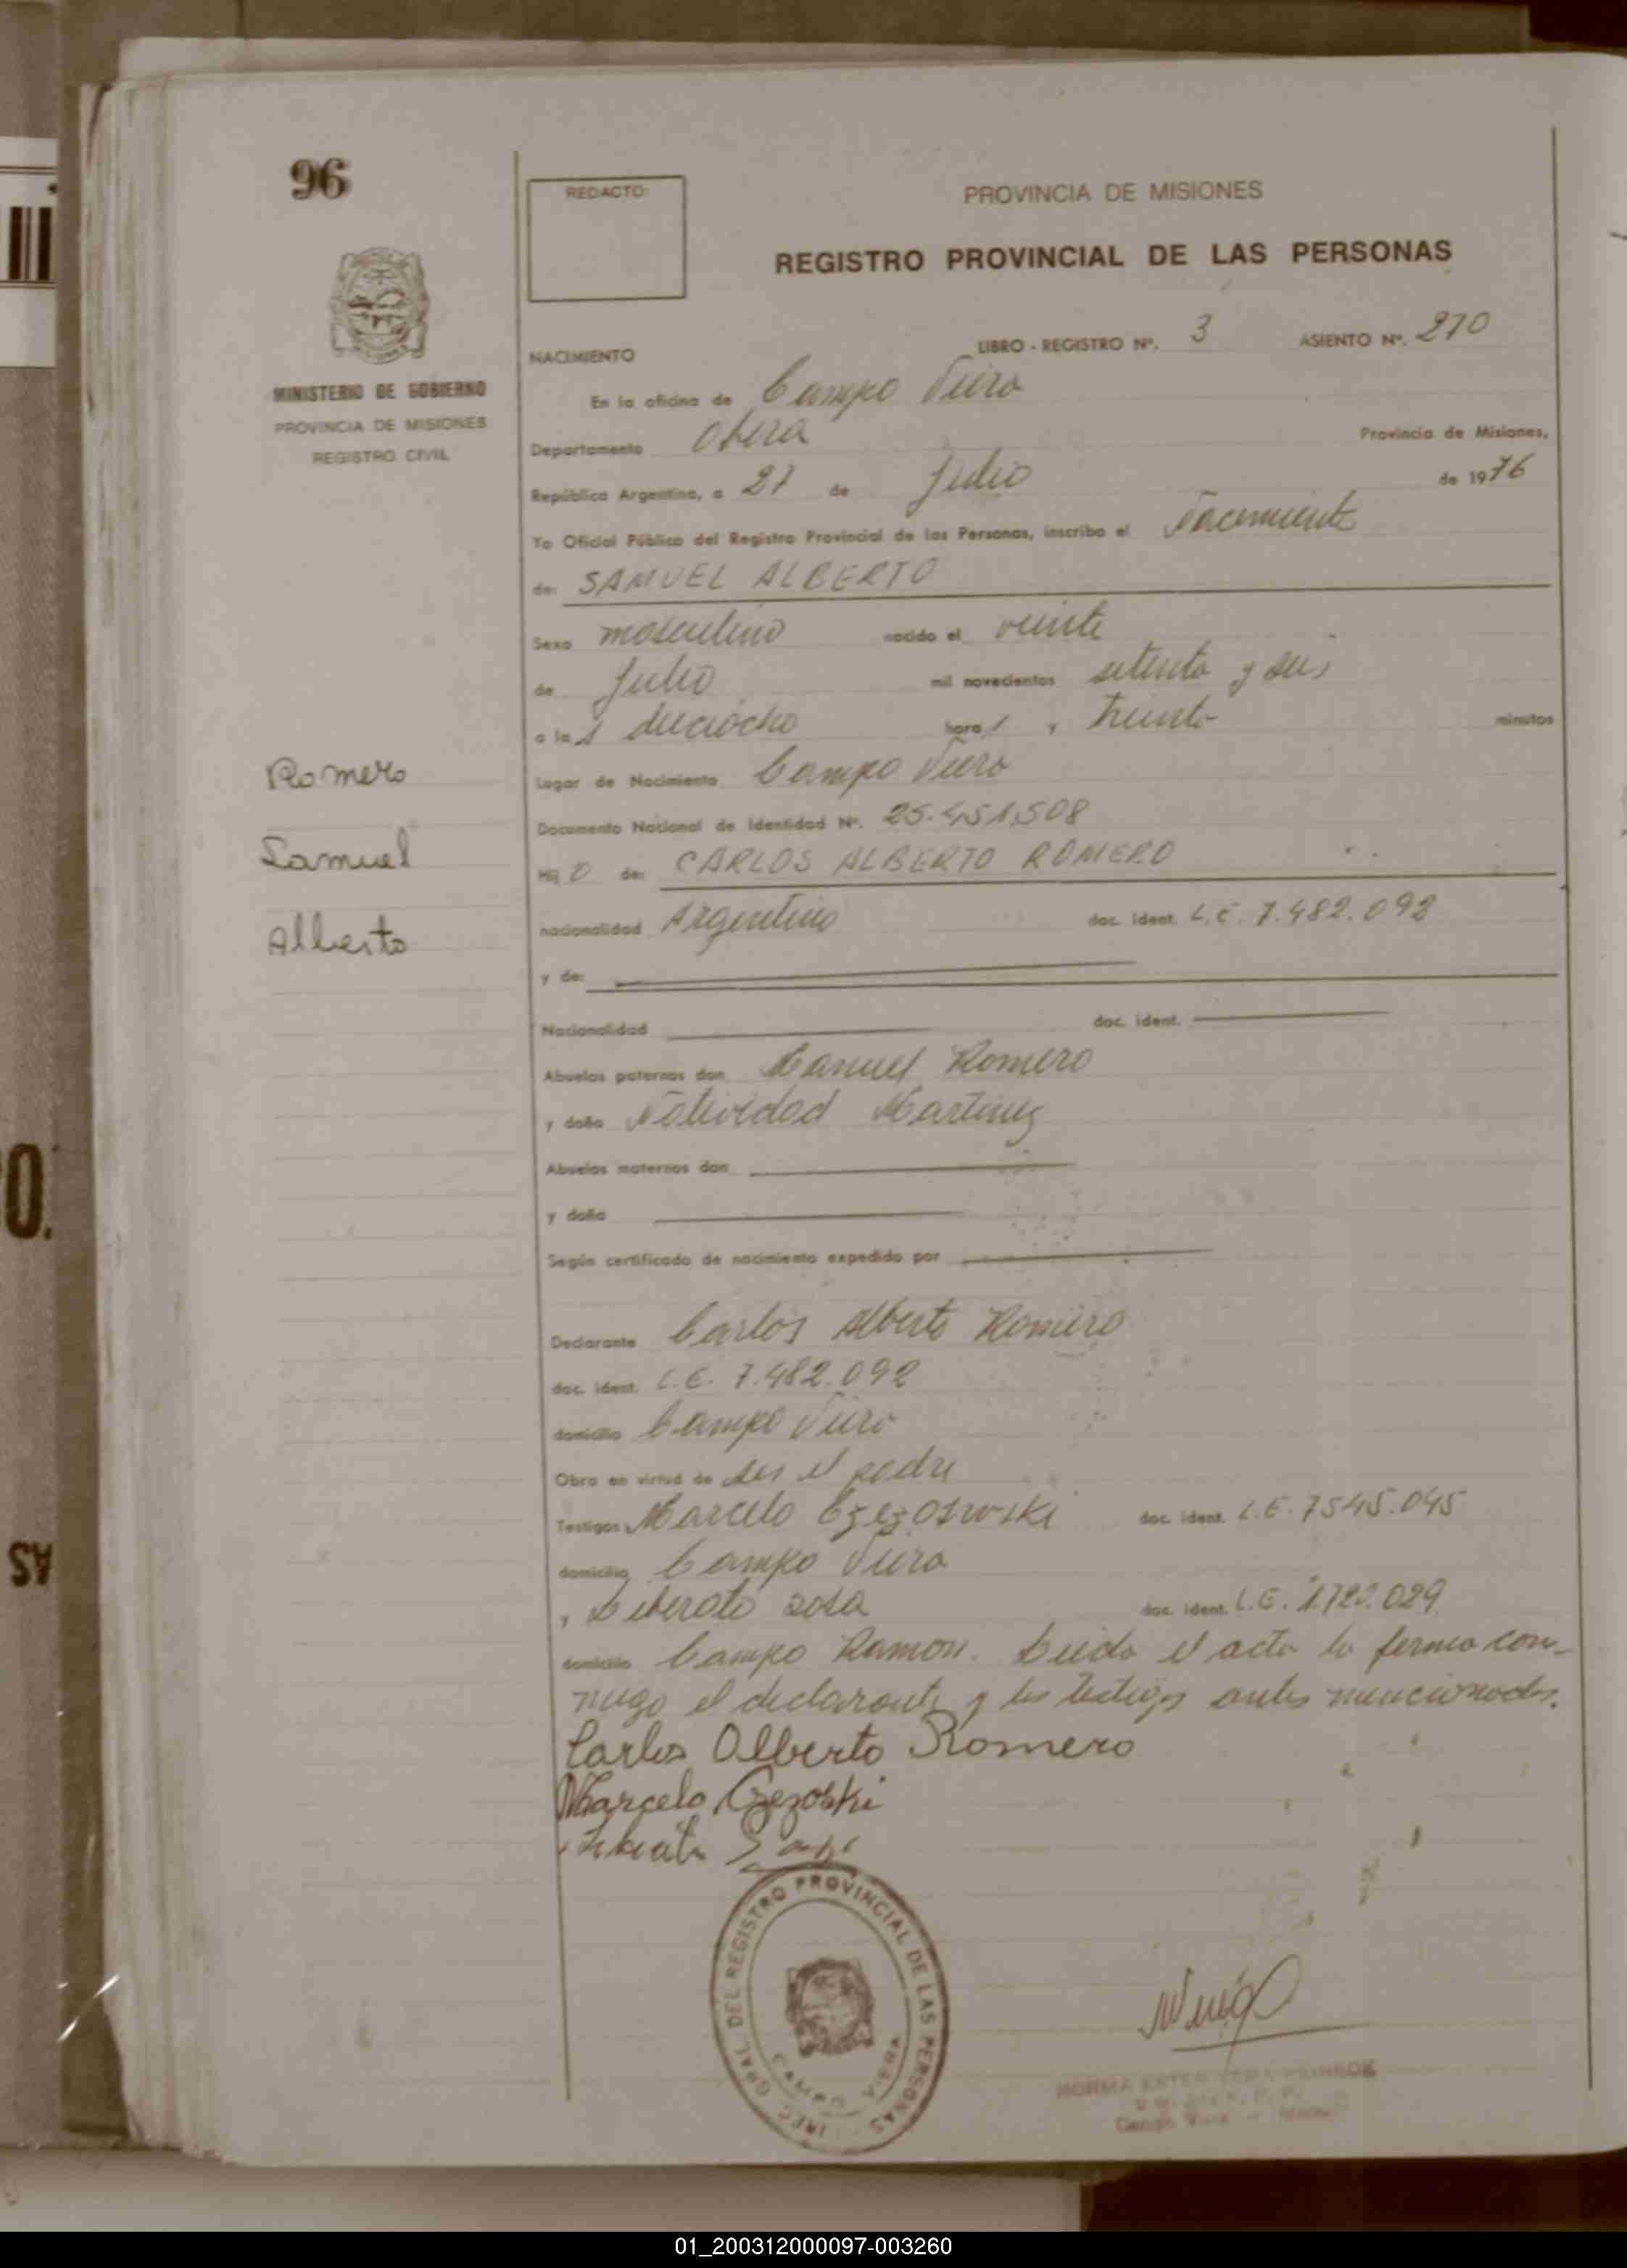 96
REDACTO:
PROVINCIA DE MISIONES
REGISTRO PROVINCIAL DE LAS PERSONAS
MINISTERIO DE GOBIERNO
PROVINCIA DE MISIONES
REGISTRO CIVIL
LIBRO - REGISTRO Nº. 3 ASIENTO Nº. 270
NACIMIENTO
En la oficina de Campo Viera
Departamento Obera Provincia de Misiones,
República Argentina, a 27 de Julio de 1976
Yo Oficial Público del Registro Provincial de las Personas, inscribo el Nacimiento
de: SAMUEL ALBERTO
Sexo masculino nacido el veinte
de Julio mil novecientos setenta y seis
a las dieciocho horas y treinta minutos
Romero
Samuel
Alberto
Lugar de Nacimiento Campo Viera
Documento Nacional de Identidad Nº. 25.451.508
Hijo de: CARLOS ALBERTO ROMERO
nacionalidad Argentino doc. ident. L.E. 7.482.092
y de:
Nacionalidad doc. ident.
Abuelos paternos don Manuel Romero
y doña Natividad Martinez
Abuelos maternos don
y doña
Según certificado de nacimiento expedido por
Declarante Carlos Alberto Romero
doc. ident. L.E. 7.482.092
domicilio Campo Viera
Obra en virtud de ser el padre
Testigos Marcelo doc. ident. L.E. 7545.045
domicilio Campo Viera
y Liberato sosa doc. ident. L.E. 1.722.029
domicilio Campo Ramon. Leida el acta la firma con-
migo el declarante y los testigos antes mencionados.
Carlos Alberto Romero
Marcelo Czezoski
Liberato
GRAL. DEL REGISTRO PROVINCIAL DE LAS PERSONAS
CAMPO VIERA
NORMA ESTER VERA
Campo Viera
O.
AS
01_200312000097-003260